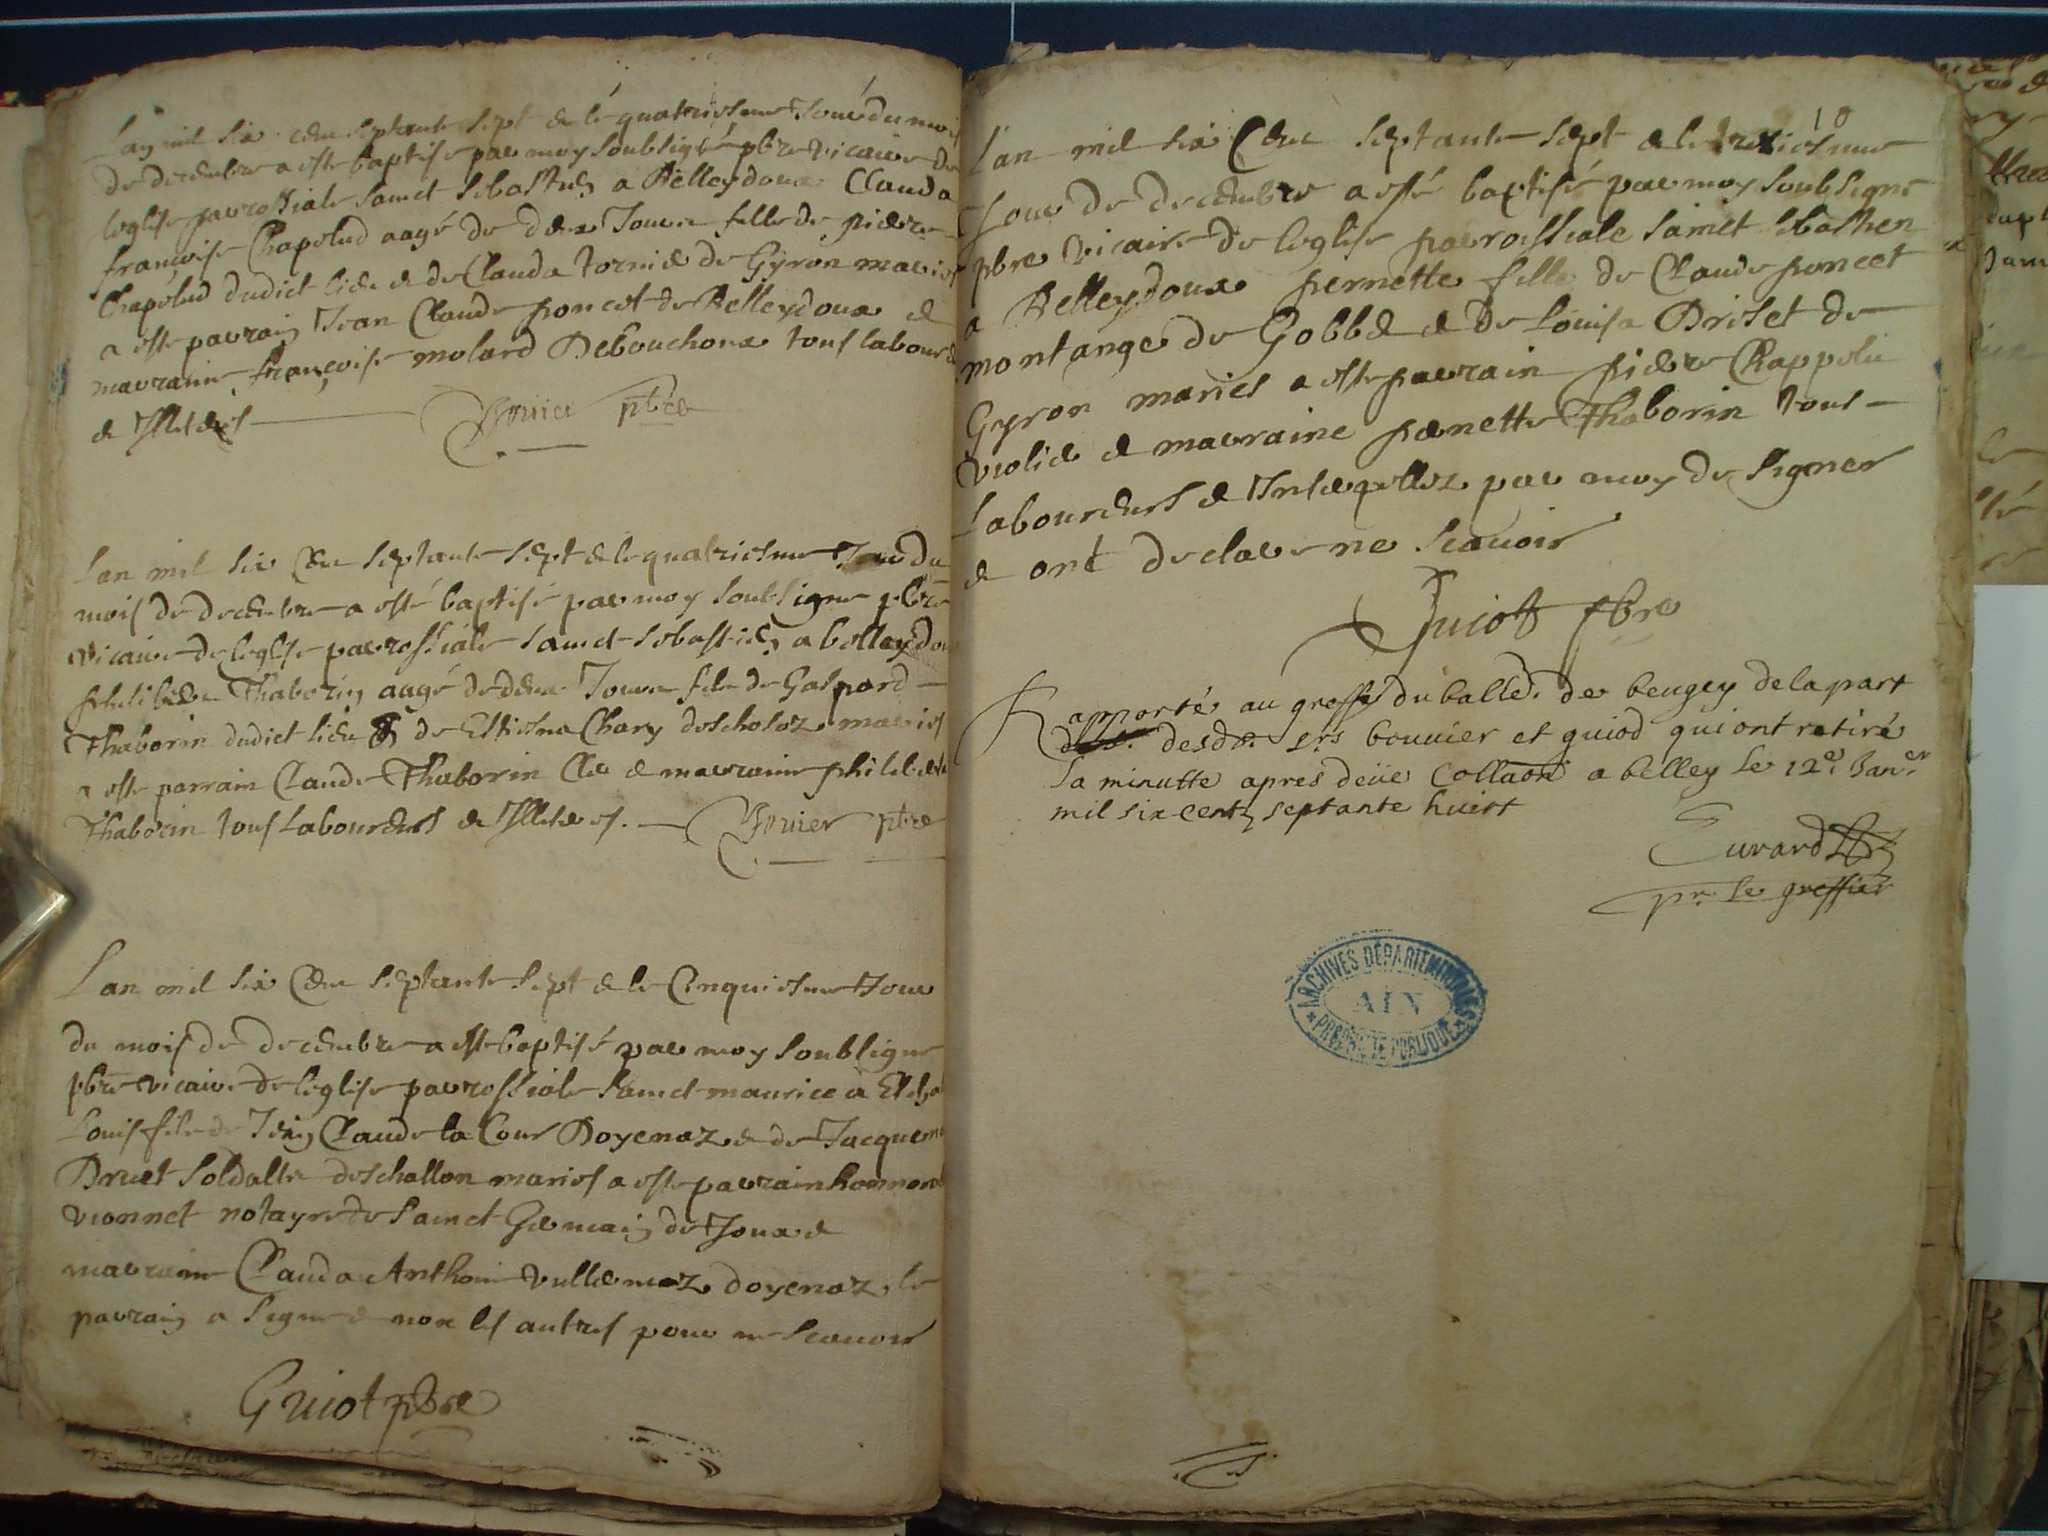 Lan mil six cens septante sept & le quatriesme Jour du mois
de decembre a este baptise par moy soubsigné pbre vicaire de
leglise parrossiale sainct sebastien a Belleydoux Clauda
francoise Chapelud aagé de deux Jours fille de pierre
Chapélud dudict lieu & de Clauda tornie de Gÿron mariés
a este parrain Jean Claude poncet de Belleydoux &
marraine françoise molard Debouchoux tous laboureurs
& Illiterés
Bouuier pbre
Lan mil six Cens septante sept & le quatriesme Jour du
mois de decembre a esté baptisé par moy soubsigne pbre
vicaire de leglise parrossiale sainct sebastien a belleydoux
philiberte Thaborin aagé de deux Jours file de Gaspard
Thaborin dudict lieu & de Estiesna Chary descholoz mariés
a este parrain Claude Thaborin Cler & marraine philiberte
Thaborin tous Laboureurs & Illiteres. Bouuier pbre
Lan mil six Cens septante sept & le Cinquiesme Jour
du mois de decembre a este baptisé par moy soubsigne
pbre vicaire de leglise parrossiale sainct maurice a Echa
Louis fils de Jean Claude la Cour Doyenaz & de Jacquema
Druet soldatte deschallon mariés a este parrain honnora
vionnet notayre de sainct Germain de Joux &
marraine Clauda Anthoine vullermoz doyenaz le
parrain a signe & non les autres pour ne scauoir
Guiot pbre
10
Lan mil six Cens septante sept & le treziesme
Jour de decembre a esté baptisé par moy soubsigne
pbre vicaire de leglise parrossiale sainct sebastien
a Belleydoux pernette fille de Claude poncet
montange de Gobbet & de Louisa Briset de
Gyron mariés a este parrain pierre Chappelu
violie & marraine pernette Thaborin tous
Laboureurs & Interpellez par moy de signer
& ont declare ne scauoir
Guiot pbre
Rapporté au greffe du balle. de beugey de la part
desd. srs bouuier et guiod qui ont retiré
la minutte apres deüe Collaon a belley le 12e. Janer
mil six centz septante huict
Euvrard
pr. le greffier
ARCHIVES DÉPARTEMENTALES
AIN
PROPRIÉTÉ PUBLIQUE